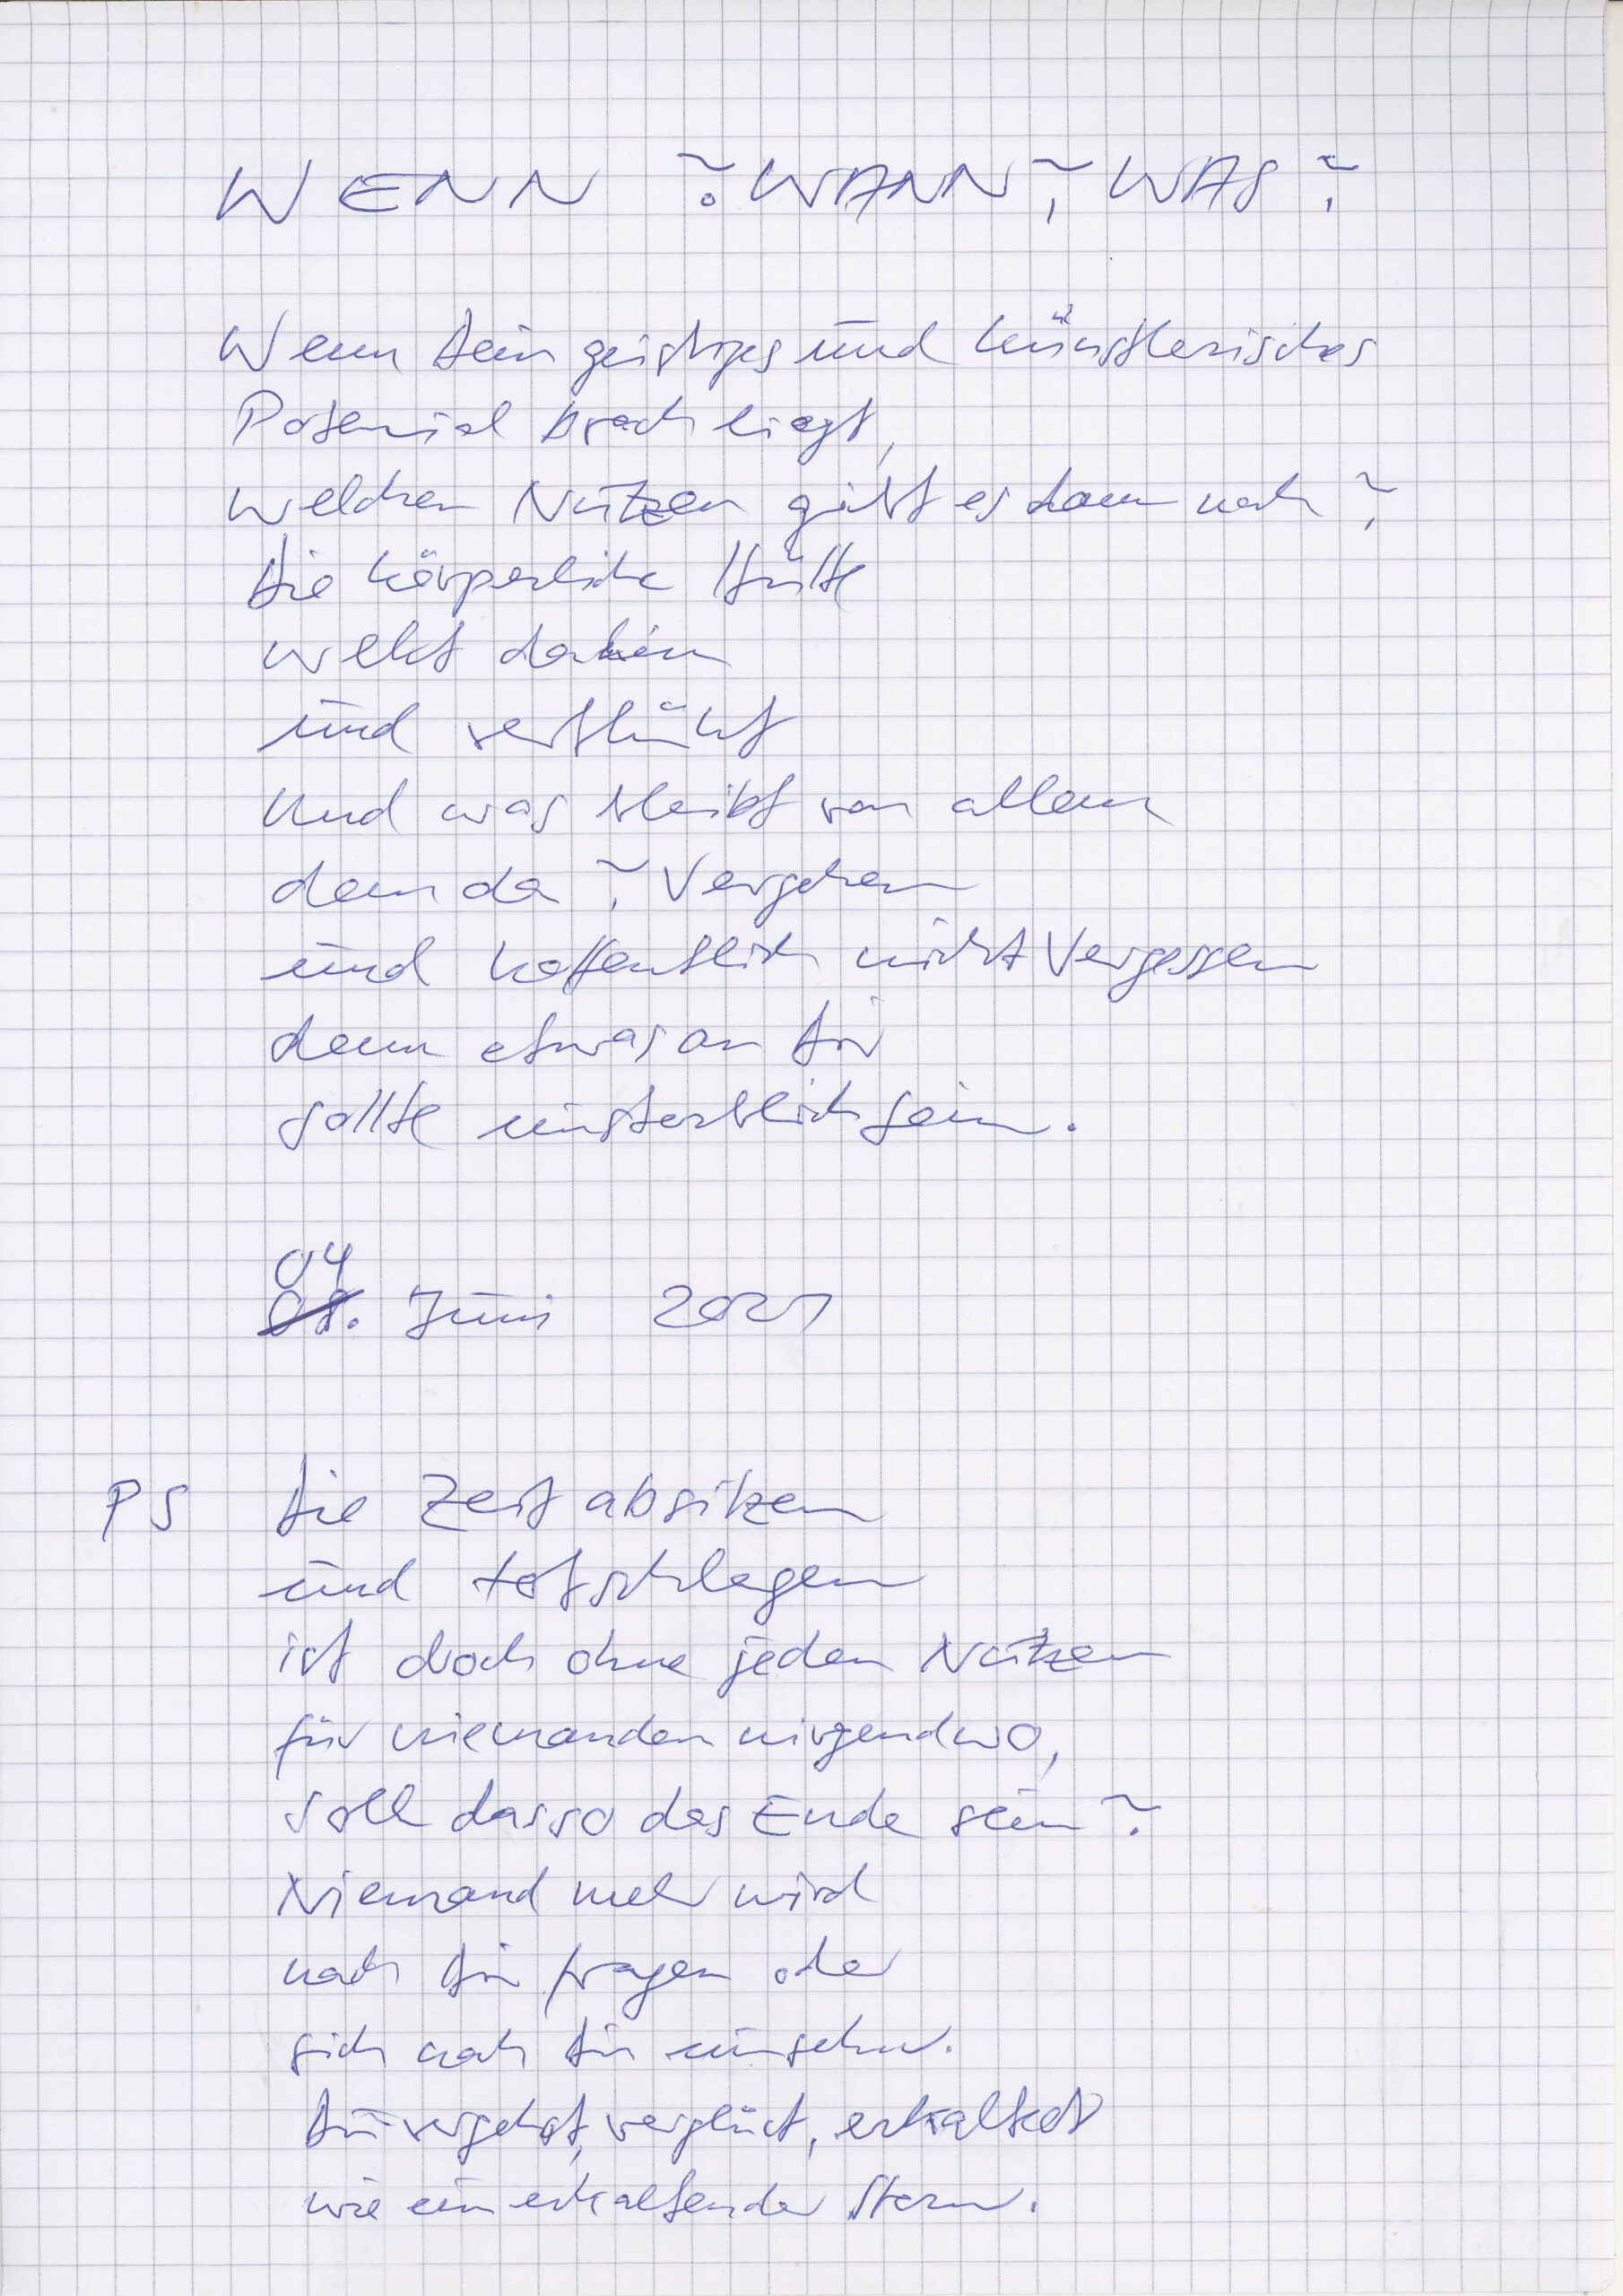 WENN ? WANN ? WAS ?
Wenn Dein geistiges und künstlerisches
Potenial brach liegt,
welchen Nutzen gibt es dann noch ?
Die körperliche Hülle
welkt dahin
und verblüht
Und was bleibt von allem
dem da ? Vergehen
und hoffentlich nicht Vergessen
denn etwas an Dir
sollte unsterblich sein.
04
08. Juni 2021
PS Die Zeit absitzen
und totschlagen
ist doch ohne jeden Nutzen
für niemanden nirgendwo,
soll das so das Ende sein ?
Niemand mehr wird
nach Dir fragen oder
sich nach Dir umsehn.
Du vergehst, verglüht, erkaltet
wie ein erkaltender Stern.